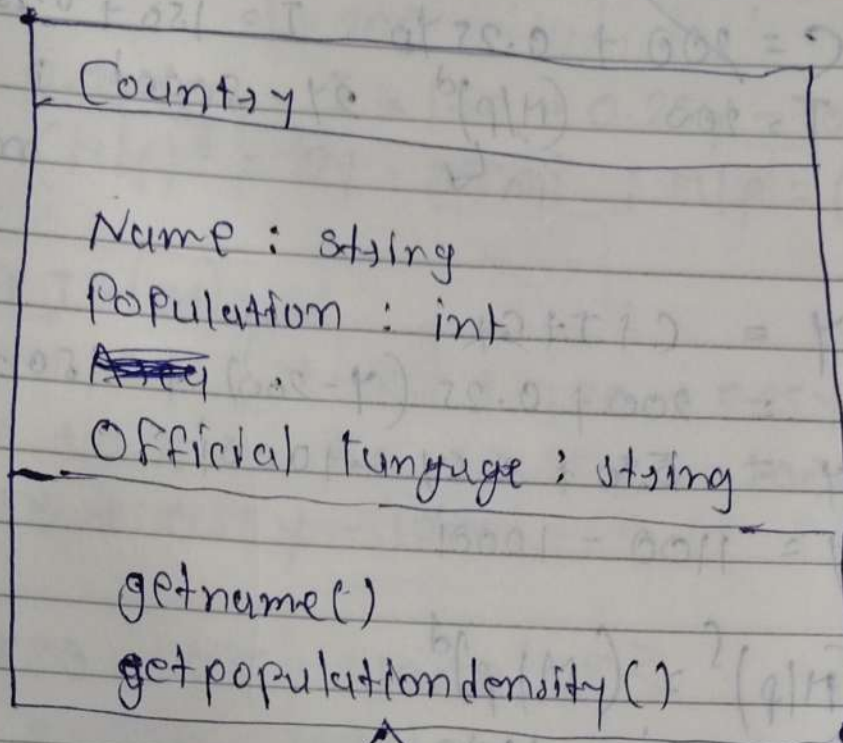 Country .
Name : string
Population : int
Official language : string
getname()
getpopulationdensity()